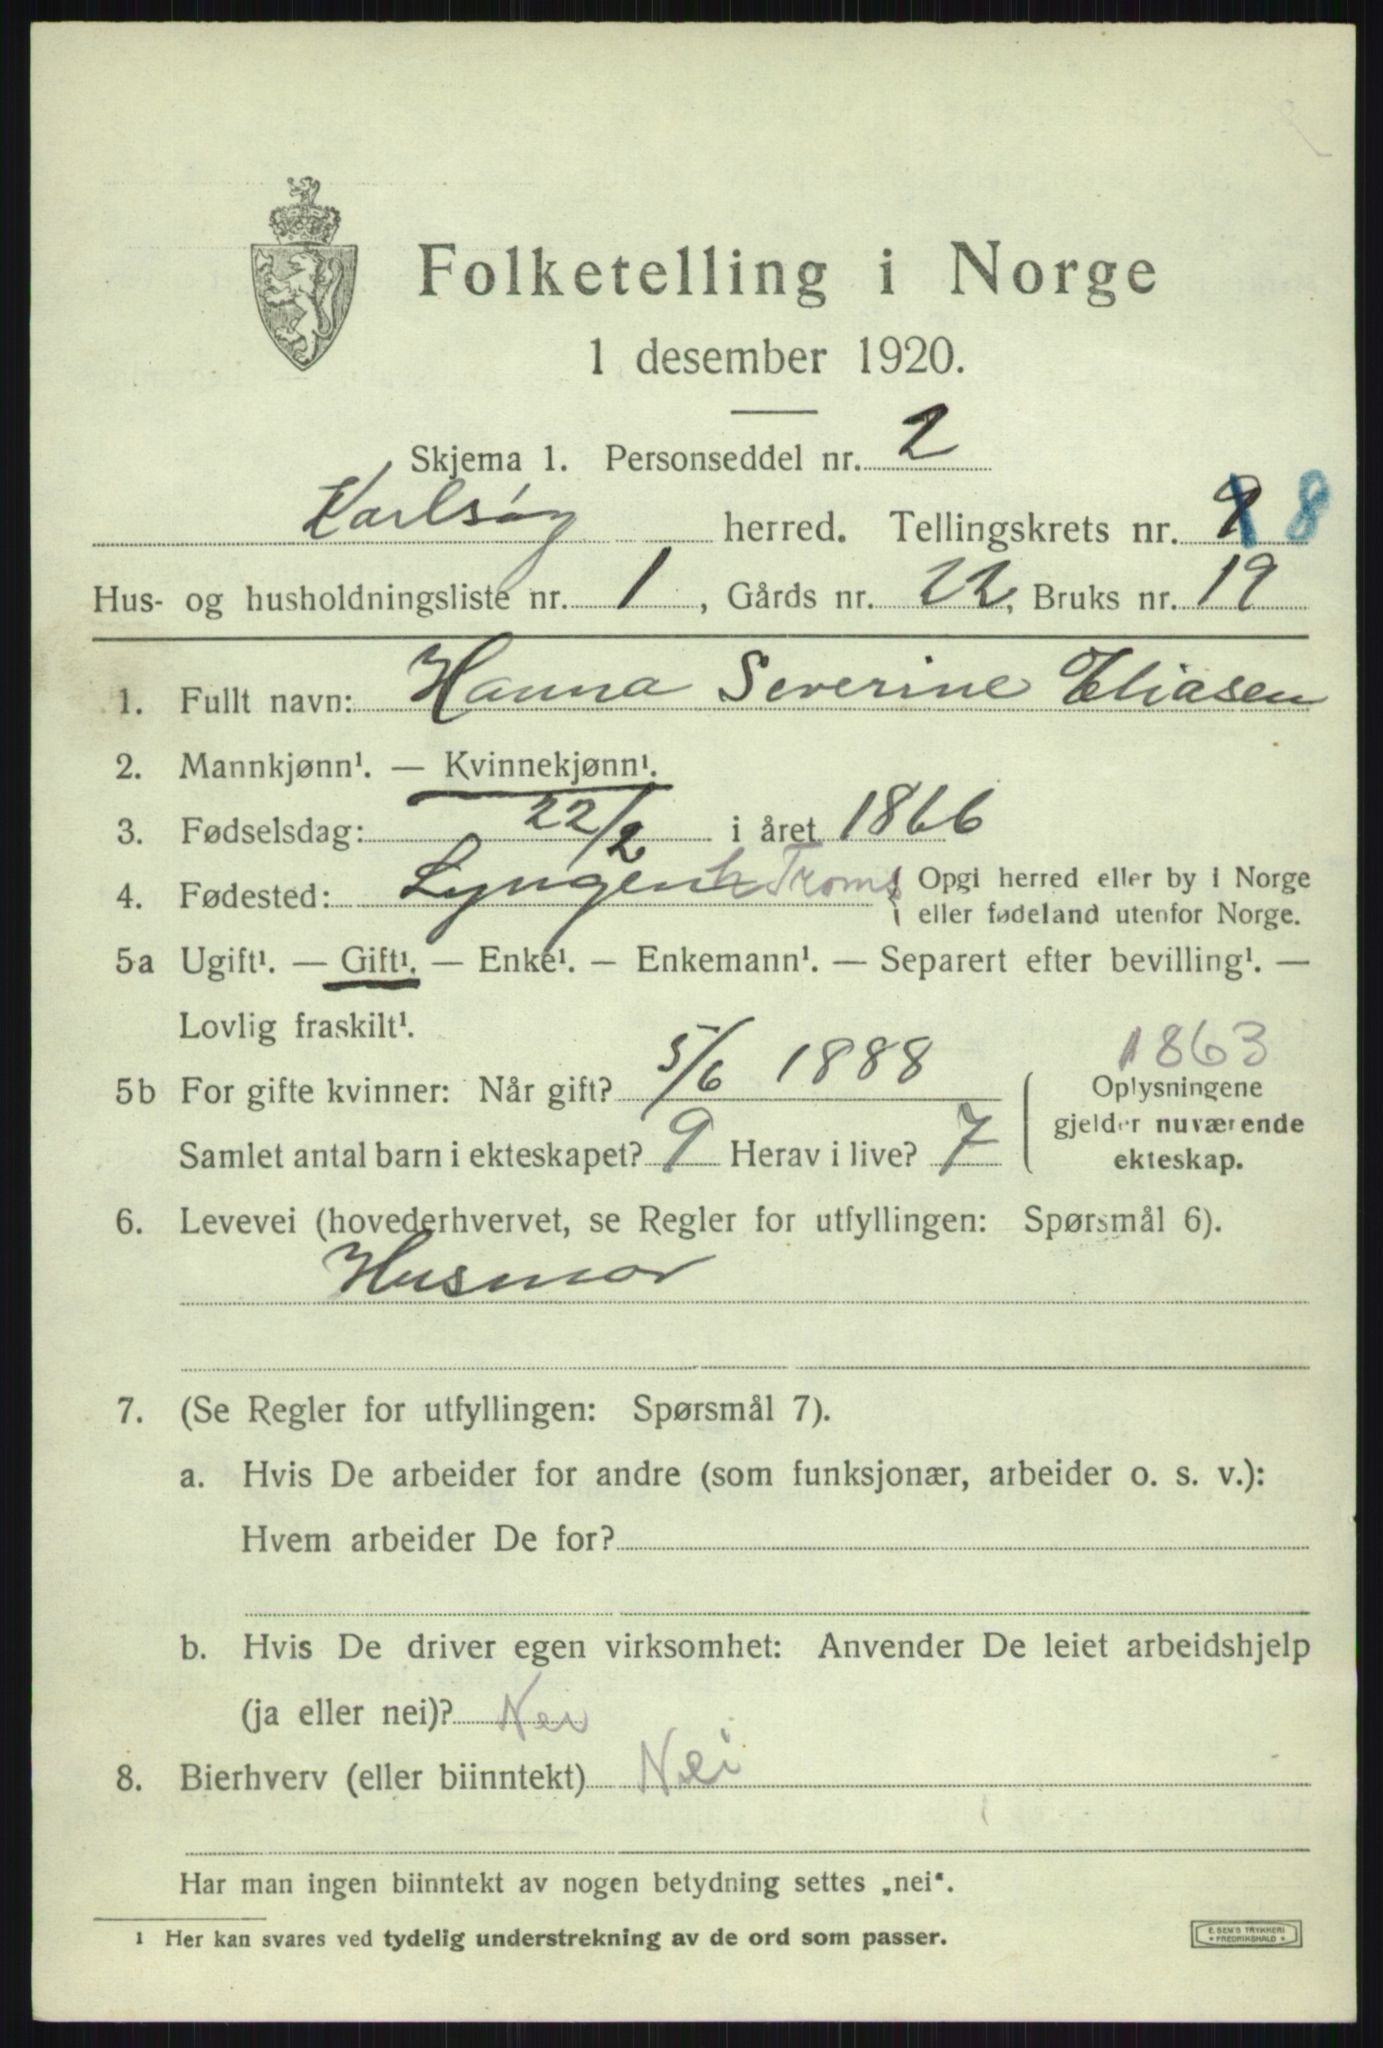 Folketelling i Norge
1 desember 1920.
Skjema 1. Personseddel nr. 2
Karlsøy herred. Tellingskrets nr. 9 8
Hus- og husholdningsliste nr. 1, Gårds nr. 22, Bruks nr. 19
1. Fullt navn: Hanna Severine Eliasen
2. Mannkjønn¹. — Kvinnekjønn¹.
3. Fødselsdag: 22/2 i året 1866
4. Fødested: Lyngen h Troms { Opgi herred eller by i Norge
eller fødeland utenfor Norge.
5a Ugift¹. — Gift¹. — Enke¹. — Enkemann¹. — Separert efter bevilling¹. —
Lovlig fraskilt¹.
1863
5b For gifte kvinner: Når gift? 5/6 1888
Samlet antal barn i ekteskapet? 9 Herav i live? 7
Oplysningene
gjelder nuværende
ekteskap.
6. Levevei (hovederhvervet, se Regler for utfyllingen: Spørsmål 6).
Husmor
7. (Se Regler for utfyllingen: Spørsmål 7).
a. Hvis De arbeider for andre (som funksjonær, arbeider o. s. v.):
Hvem arbeider De for?
b. Hvis De driver egen virksomhet: Anvender De leiet arbeidshjelp
(ja eller nei)? Nei
8. Bierhverv (eller biinntekt) Nei
Har man ingen biinntekt av nogen betydning settes „nei“.
1 Her kan svares ved tydelig understrekning av de ord som passer.
E. SEM'S TRYKKERI
• FREDRIKSHALD •